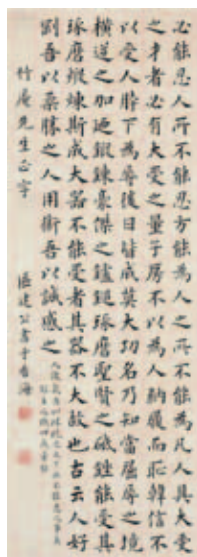 必能忍人所不能忍方能為人之所不能為凡人具大受
之才者必有大受之量子房不以為人納履而恥韓信不
以受人胯下為辱後日皆成莫大功名乃知當屈辱之境
橫逆之加迺鍛鍊豪傑之鑪錘琢磨聖賢之砥銼能受其
琢磨煅煉斯成大器不能受者其器不大故也古云人好
剛吾以柔勝之人用術吾以誠感之
竹庵先生正字
區建公書于香海